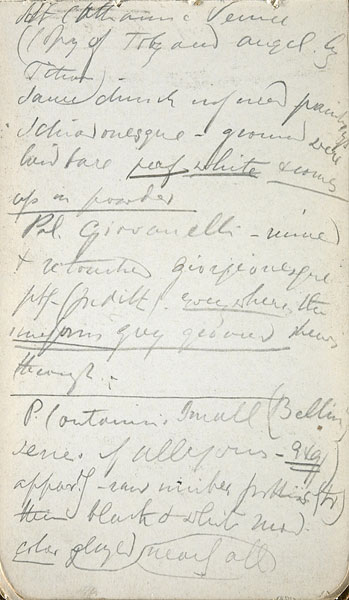 Venice
(Copy of Toby and angel by
Titian)
Same church ruined painting
Schiavonesque - ground where
laid bare perf white & comes
up in powder
Pal. Giovanelli - ruined
& retouched giorgionesque
ptg - (Judith) everywhere the
uniform grey ground shows
through.
P. Contarini Small (Bellini
series of allegories -
appar - raw umber
then black & white
color glazed) near all